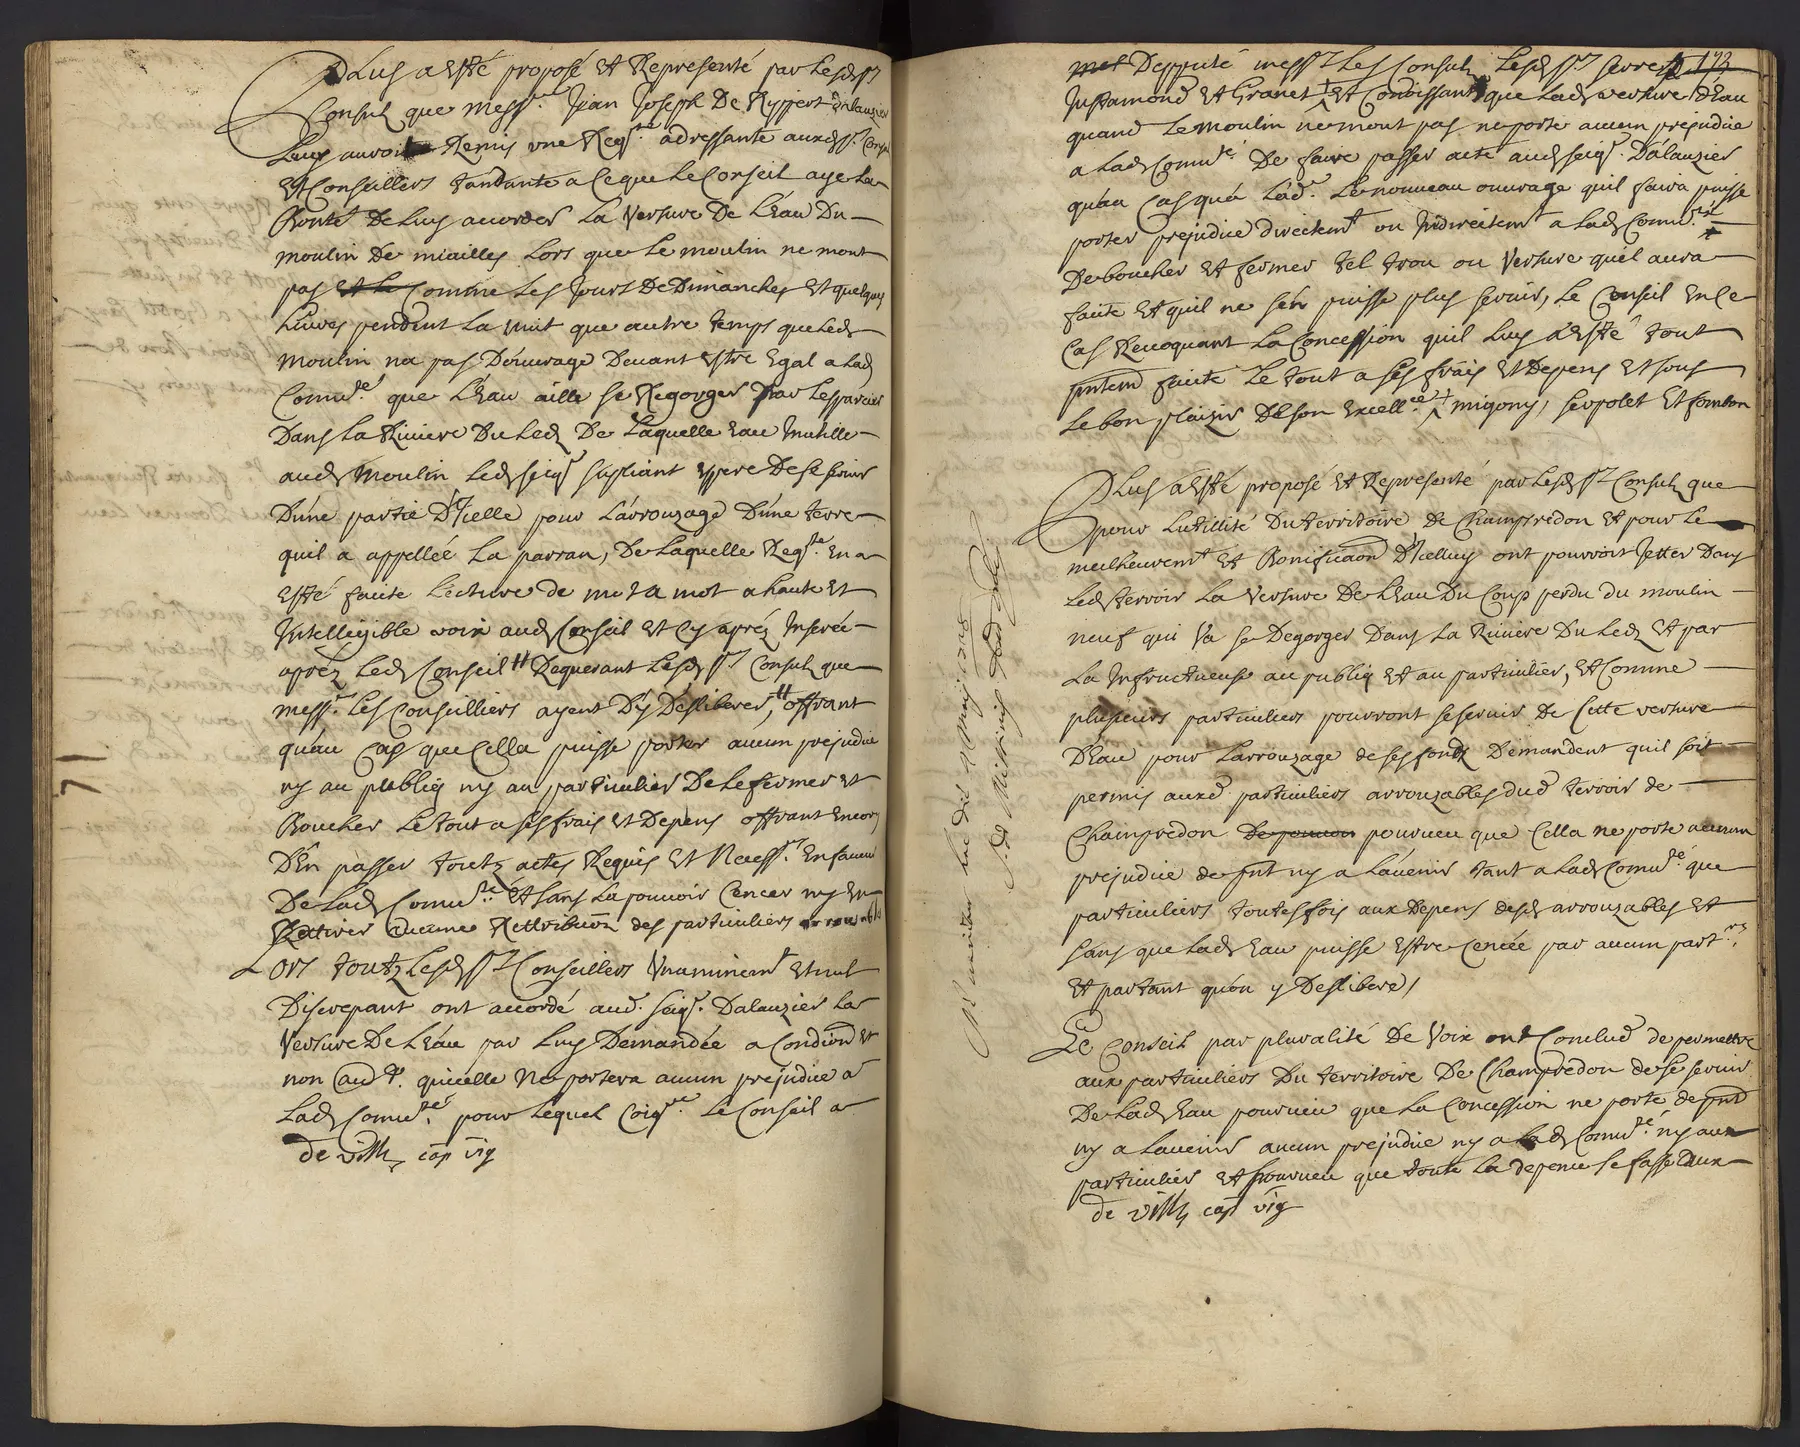 Plus a esté proposé et Representé par lesd ss.rs
Consulz que mess.e Jean Joseph De Ryppert Dalauzier
Leurs auroit Remis vne Req.te adressante auxd ss.rs Consulz
Et Conseillers tandante a ce que le Conseil aye la
Bonté De luy accorder La Versure De L'eau Du
moulin De miailles Lors que le moulin ne mout
pas et le Comme les Jours De Dimanches et quelques
heures pendant La nuit que autre temps que led
moulin na pas D'ouurage Deuant estre Egal a lad
Comu.té que L'eau aille se Regorger par les
Dans La Riuiere Du Led De Laquelle eau Inutille
aud moulin led seig.r supliant espere De se seruir
D'une partie D'icelle pour L'arrouzage D'une terre
quil a appellée La parran, De laquelle Req.te en a
esté faite Lecture de mot a mot a haute et
Intelligible voix aud Conseil et cy aprés Inserée
aprés led Conseil Requerant lesd ss.rs Consulz que
mess.rs les Conseilliers ayent D'y Desliberer, offrant
qu'au Cas que Cella puisse porter aucun prejudice
ny au publiq ny au particulier De le fermer et
Boucher Le tout a ses frais et Depens offrant Encore
D'En passer toutz actes Requis et Necess.res En faueur
De Lad Comu.té et sans La pouuoir Cencer ny en
Rettirer aucune Rettribuon des particuliers
Lors toutz lesd ss.rs Conseillers Vnaninem.t et nul
Discrepant ont accordé aud. seig.r Dalauzier La
Versure De L'eau par Luy Demandée a condiond et
non aud.t quicelle Ne portera aucun prejudice a
Lad Comu.té pour lequel le Conseil a
de vill cap vig
71
173
met Depputé mess.rs les Consulz Lesd ss.rs serre
Justamond et Granet et Conoissant que lad versure D'eau
quand Le moulin ne mout pas ne porte aucun prejudice
a lad Comu.té De faire passer acte aud seig.r Dalauzier
qu'au Cas qu'a L'ad.r Le nouueau ouurage quil faira puisse
porter prejudice directem.t ou Indirectem.t a lad Comu.té
De boucher et fermer tel trou ou Versure quel aura
faite et quil ne s'en puisse plus seruir, Le Conseil en ce
Cas Reuoquant La Concession quil luy a esté tout
faite Le tout a ses frais et Depens et sous
Le bon plaizir De son Excell.ce migony, serpolet et
Plus a esté proposé et Representé par lesd ss.rs Consulz que
pour Lutillité Du territoire De Champredon et pour Le
meilheurem.t et Bonificaon D'Jcelluy ont pourroit Jetter Dans
Led terroir La Versure De L'eau Du Coup perdu du moulin
neuf qui Va se Degorger Dans La Riuiere Du Led et par
La Infructueuse au publiq et au particulier, et Comme
plusieurs particuliers pourront se seruir De Cette versure
D'eau pour Larrouzage de ses fondz Demandent quil soit
permis auxd particuliers arrouzables dud terroir de
Champredon De pouuoir pourueu que Cella ne porte aucun
prejudice de pnt ny a L'auenir tant a lad Comu.té que
particuliers toutesfois aux Depens desd arrouzables et
sans que lad eau puisse estre Cencée par aucun part.rs
et partant qu'on y Deslibere /
Le Conseil par pluralité De Voix ont Conclud de permettre
aux particuliers Du territoire De Champredon de se seruir
De lad eau pourueu que La Concession ne porte de pnt
ny a Lauenir aucun prejudice ny a lad Comu.té ny aux
particulier et pourueu que toute La depence se fasse aux
de vill cap vig